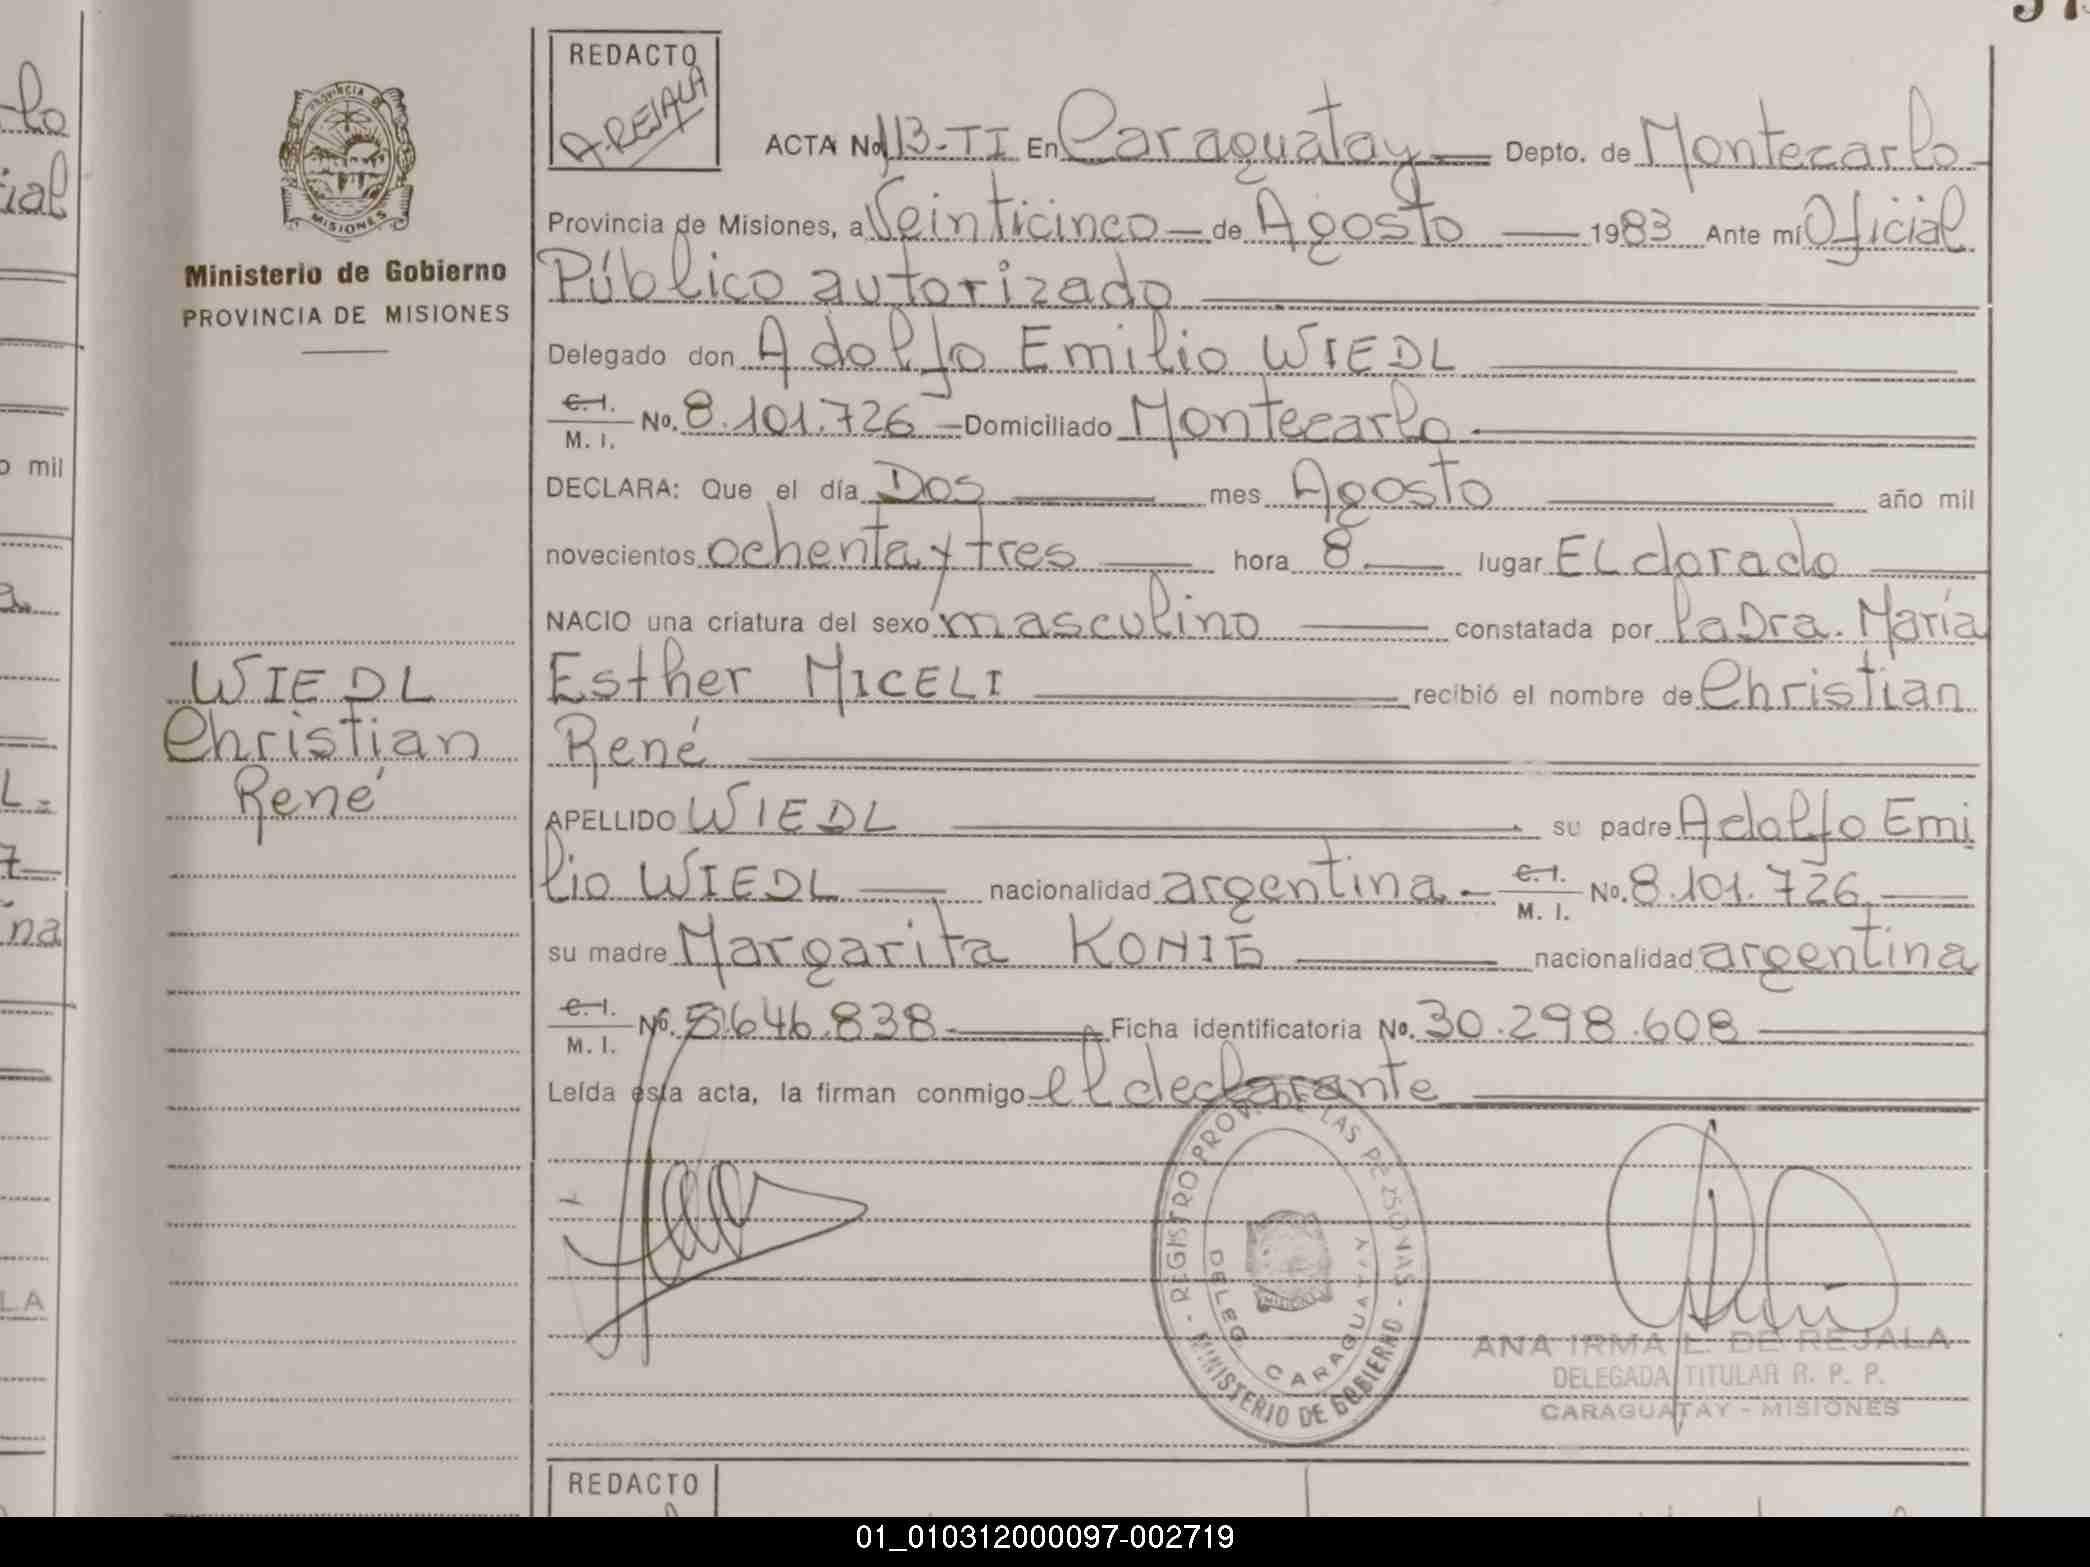 REDACTO
A. REJALA
ACTA No. 113-TI En Caraguatay Depto. de Montecarlo
Provincia de Misiones, a Veinticinco de Agosto 1983 Ante mí Oficial
Público autorizado
Delegado don Adolfo Emilio WIEDL
C.I.
M. I. No. 8.101.726 Domiciliado Montecarlo
DECLARA: Que el día Dos mes Agosto año mil
novecientos ochenta y tres hora 8 lugar ELdorado
NACIO una criatura del sexo masculino constatada por la Dra. María
Esther MICELI recibió el nombre de Christian
René
APELLIDO WIEDL su padre Adolfo Emi
lio WIEDL nacionalidad argentina C.I.
M. I. No. 8.101.726
su madre Margarita KONIG nacionalidad argentina
C.I.
M. I. No. 646.838 Ficha identificatoria No. 30.298.608
Leída esta acta, la firman conmigo el declarante
PROVINCIA DE
MISIONES
Ministerio de Gobierno
PROVINCIA DE MISIONES
WIEDL
Christian
René
REGISTRO PROV. DE LAS PERSONAS - MINISTERIO DE GOBIERNO -
DELEG. CARAGUATAY
ANA IRMA L. DE REJALA
DELEGADA TITULAR R. P. P.
CARAGUATAY - MISIONES
REDACTO
lo
ial
o mil
a
L
7
na
LA
01_010312000097-002719